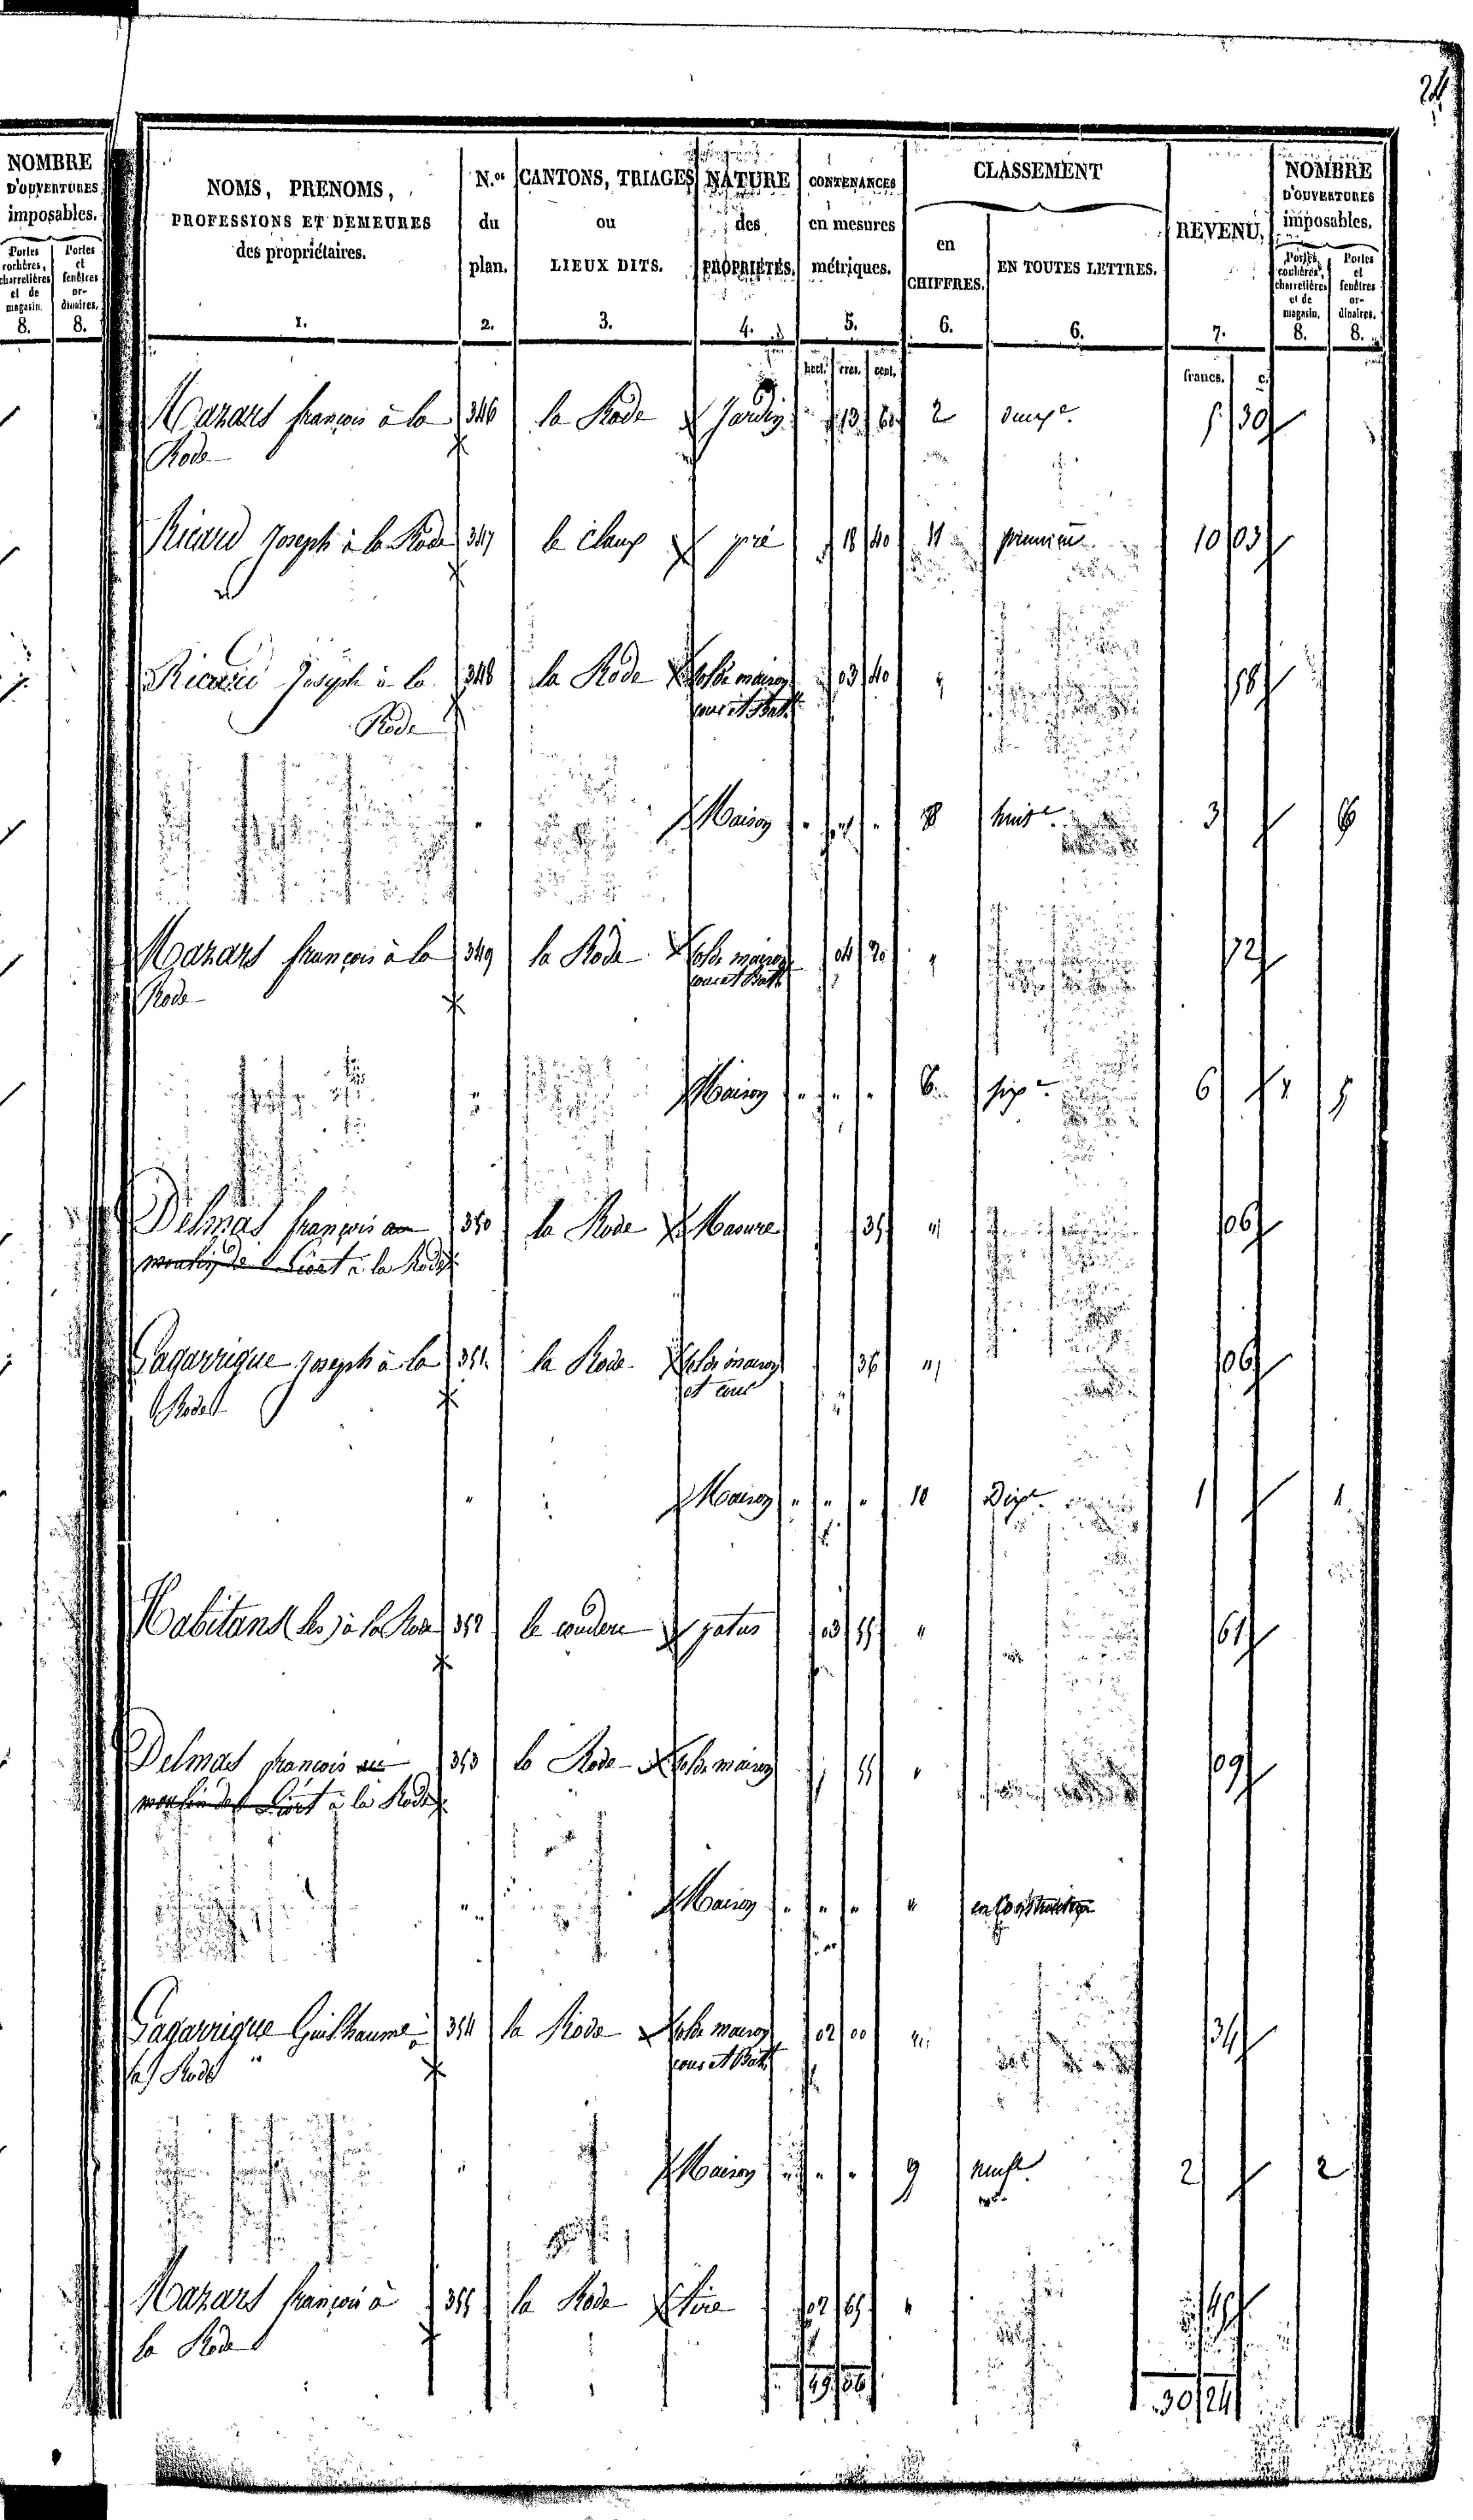 24
NOMBRE
D'OUVERTURES
imposables.
Portes cochères, charretières et de magasin. Portes et fenêtres ordinaires.
8. 8.
NOMS, PRENOMS, PROFESSIONS ET DEMEURES des propriétaires. N.os du plan. CANTONS, TRIAGES ou LIEUX DITS. NATURE des PROPRIÉTÉS. CONTENANCES en mesures métriques. CLASSEMENT en CHIFFRES. EN TOUTES LETTRES. REVENU. NOMBRE D'OUVERTURES imposables. Portes cochères, charretières et de magasin. Portes et fenêtres ordinaires.
1. 2. 3. 4. 5. 6. 6. 7. 8. 8.
hect. ares. cent. francs. c.
Mazars françois à la 346 la Rode Jardin 13 60 2 deux.e 5 30
Rode
Ricard Joseph à la Rode 347 le claux pré 18 40 1 première 10 03
Ricard Joseph à la 348 la Rode sol de maison 03 40 " 58
Rode cour et Bat.t
" Maison " " " 8 huit.e 3 6
Mazars françois à la 349 la Rode sol de maison 04 20 " 72
Rode cour et Bat.t
" Maison " " " 6 six.e 6 " 5
Delmas françois au 350 la Rode Masure 35 " 06
moulin de Liort à la Rode
Lagarrigue Joseph à la 351 la Rode sol de maison 36 " 06
Rode et cour
" Maison " " " 10 Dix.e 1 1
Habitans (les) à la Rode 352 le couderc patus 03 55 " 61
Delmas françois au 353 la Rode sol de maison 55 " 09
moulin de Liort à la Rode
" Maison " " " " en Construction
Lagarrigue Guilhaume à 354 la Rode sol de maison 02 00 " 34
la Rode cour et Bat.t
" Maison " " " 9 neuf.e 2 2
Mazars françois à 355 la Rode 02 65 " 45
la Rode
49 06 30 24